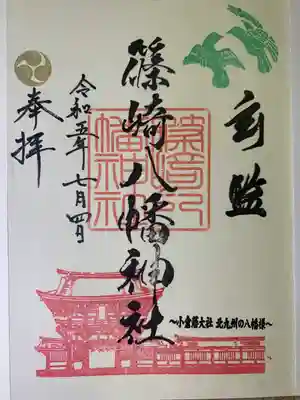 篠崎八幡神社
篠崎八
幡神社
奉拝
令和五年七月四日
～小倉藩大社 北九州の八幡様～